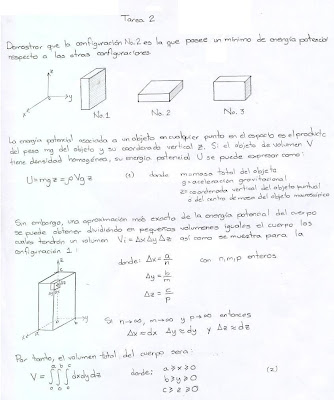 Tarea 2
Demostrar que la configuración No. 2 es la que posee un mínimo de energía potencial
respecto a las otras configuraciones.
z
y
x
No. 1
No. 2
No. 3
La energía potencial asociada a un objeto en cualquier punto en el espacio es el producto
del peso mg del objeto y su coordenada vertical z. Si el objeto de volumen V
tiene densidad homogénea, su energía potencial U se puede expresar como:
U = mgz = ρVgz (1) donde m = masa total del objeto
g = aceleración gravitacional
z = coordenada vertical del objeto puntual
o del centro de masa del objeto macroscópico
Sin embargo, una aproximación más exacta de la energía potencial del cuerpo
se puede obtener dividiéndolo en pequeños volúmenes iguales el cuerpo los
cuales tendrán un volumen Vi = ΔxΔyΔz así como se muestra para la
configuración 1:
donde: Δx = a/n con n, m, p enteros
Δy = b/m
Δz = c/p
Si n→∞, m→∞ y p→∞ entonces
Δx ≈ dx Δy ≈ dy y Δz ≈ dz
Por tanto, el volumen total del cuerpo será:
V = ∫₀ᵃ∫₀ᵇ∫₀ᶜ dxdydz donde: a ≥ x ≥ 0 (2)
b ≥ y ≥ 0
c ≥ z ≥ 0